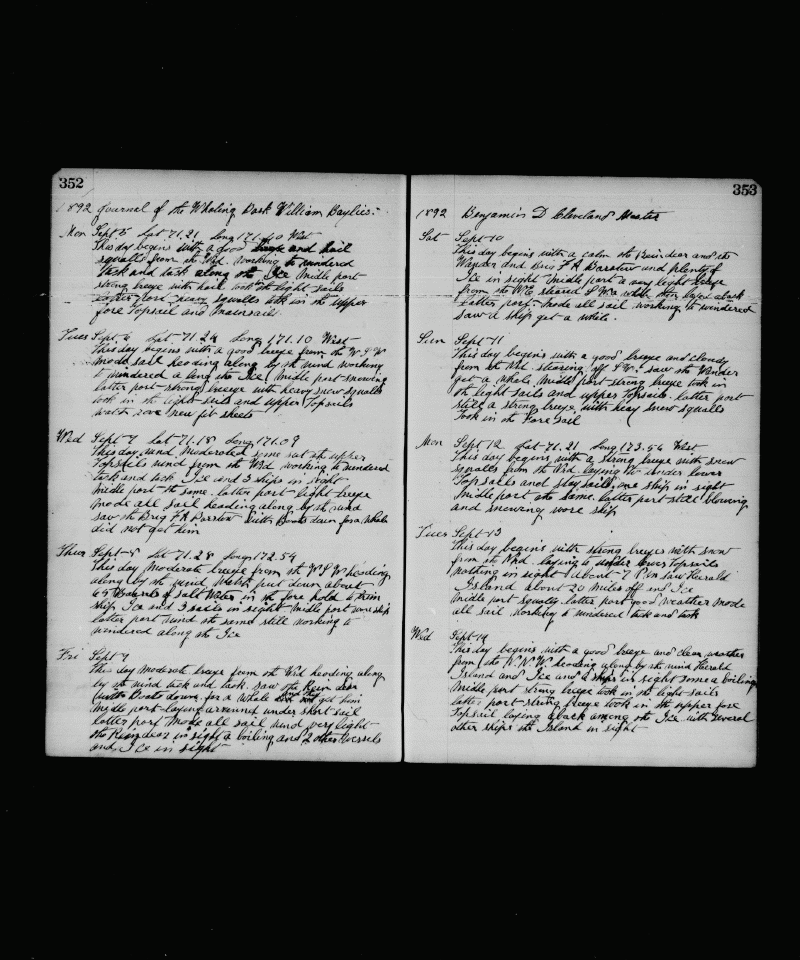 352
1892 Journal of the Whaling Bark William Baylies.
Mon Sept 5 Lat 71.21 Long 171.40 West
This day begins with a good breeze and hail
squalls from the Wd. working to windered
tack and tack along the Ice Middle part
strong breeze with hail took in the light sails
latter part heavy squalls took in the upper
fore Topsail and Mainsail.
Tues Sept. 6 Lat 71.24 Long 171.10 West
This day begins with a good breeze from the W S W
Made sail heading along by the wind working
to windered a long the Ice, Middle part snowing
latter part strong breeze with heavy snow squalls
took in the light sails and upper Topsails
watch rove new jib sheets
Wed Sept 7 Lat 71.18 Long 171.09
This day wind Moderated some set the upper
Topsails wind from the Wd working to windered
tack and tack Ice and 3 ships in sight
Middle part the same. latter part light breeze
Made all sail heading along by the wind
saw the Brig F A Barstow with Boats down for a whale
did not get him
Thurs Sept. 8 Lat 71.28 Long 172.54
This day Moderate breeze from the W S W heading
along by the wind Watch put down about
65 Barrels of salt Water in the fore hold to trim
ship Ice and 3 sails in sight Middle part wore ship
latter part wind the same still working to
windered along the Ice
Fri Sept 9
This day Moderate breeze from the Wd heading along
by the wind tack and tack. saw the Rein deer
with Boats down for a whale and get him
Middle part laying arround under short sail
latter part Made all sail wind very light
the Reindeer in sight a boiling and 2 other Vessels
and Ice in sight
353
1892 Benjamin D Cleveland Master
Sat Sept 10
This day begins with a calm the Reindeer and the
Wander and Brig F A Barstow and plenty of
Ice in sight Middle part a very light breeze
from the
latter part. Made all sail working to windered
saw a ship get a whale.
Sun Sept 11
This day begins with a good breeze and cloudy
from the Wd stearing off S W. saw the Wander
get a whale, Middle part strong breeze took in
the light sails and upper Topsails. latter part
still a strong breeze with heavy snow squalls
Took in the Fore sail
Mon Sept 12 Lat 71.21 Long 173.54 West
This day begins with a strong breeze with snow
squalls from the Wd. laying to under lower
Topsails and stay sails, one ship in sight
Middle part the same. latter part still blowing
and snowing wore ship
Tues Sept 13
This day begins with strong breezes with snow
from the Wd. laying to under lower Topsails
nothing in sight about 7 P M saw Herald
Island about 20 Miles off and Ice
Middle part squaly latter part good weather Made
all sail working to windered tack and tack
Wed Sept 14
This day begins with a good breeze and clear weather
from the N. N. W. heading along by the wind Herald
Island and Ice and ships in sight some a boiling
Middle part strong breeze took in the light sails
latter part strong breeze took in the upper fore
Topsail laying aback among the Ice with several
other ships the Island in sight